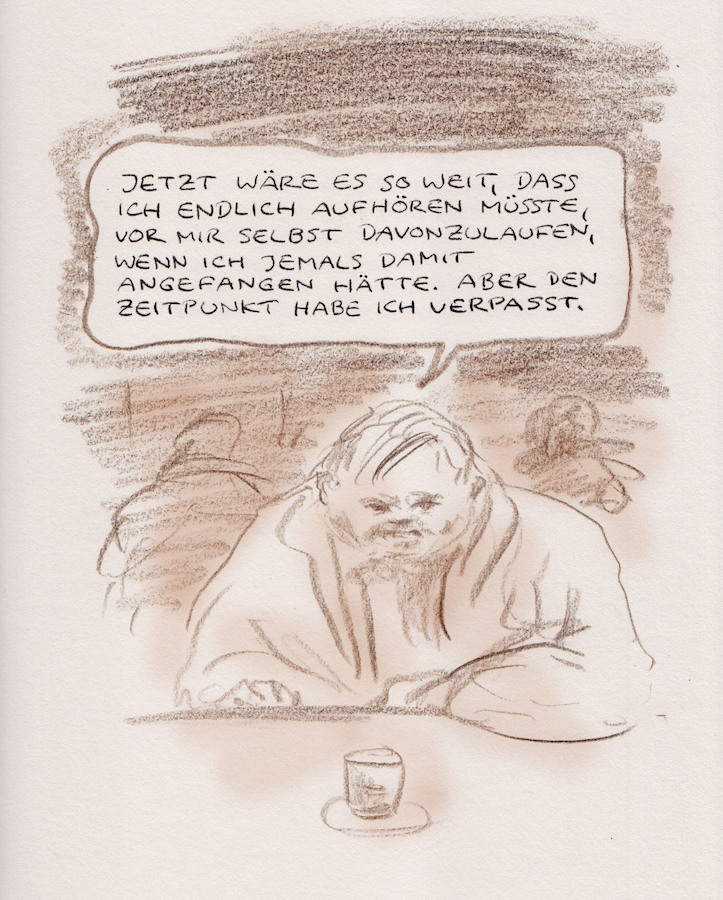 JETZT WÄRE ES SO WEIT, DASS
ICH ENDLICH AUFHÖREN MÜSSTE,
VOR MIR SELBST DAVONZULAUFEN,
WENN ICH JEMALS DAMIT
ANGEFANGEN HÄTTE. ABER DEN
ZEITPUNKT HABE ICH VERPASST.